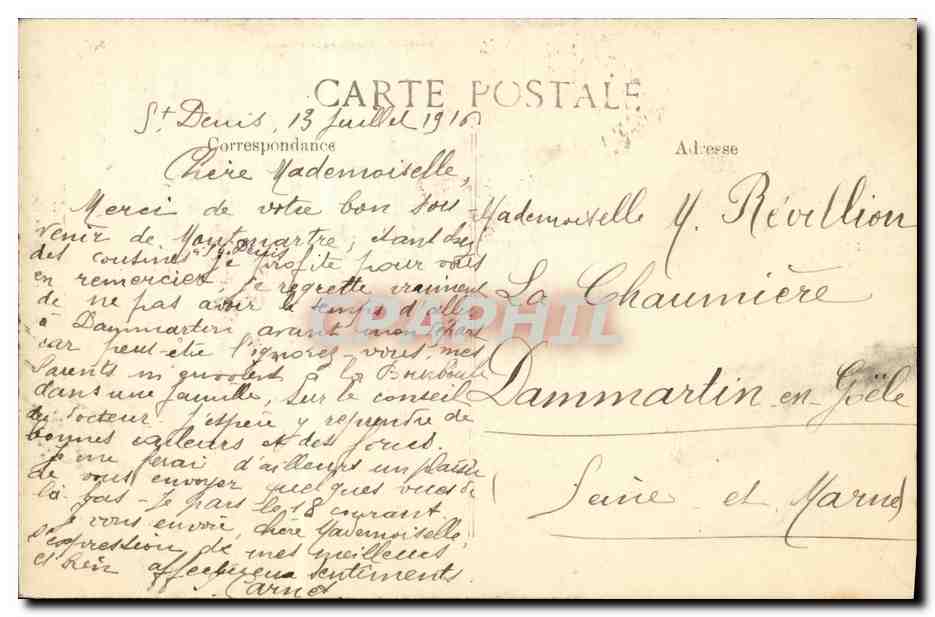 CARTE POSTALE
St Denis, 13 juillet 1916
Correspondance
Chère Mademoiselle,
Merci de votre bon sou
venir de Montmartre; étant chez
des cousines à St Denis je profite pour vous
en remercier. Je regrette vraiment
de ne pas avoir le temps d'aller
à Dammartin avant mon départ
car peut-être l'ignorez-vous, mes
Parents m'envoient à la Bourboule
dans une famille, sur le conseil
du Docteur. J'espère y reprendre de
bonnes couleurs et des forces.
Je me ferai d'ailleurs un plaisir
de vous envoyer quelques vues de
là-bas - Je pars le 18 courant
Je vous envoie, chère Mademoiselle,
l'expression de mes meilleurs
et bien affectueux sentiments.
Adresse
Mademoiselle M. Révillion
La Chaumière
Dammartin-en-Goële
Seine et Marne
CPAPHIL